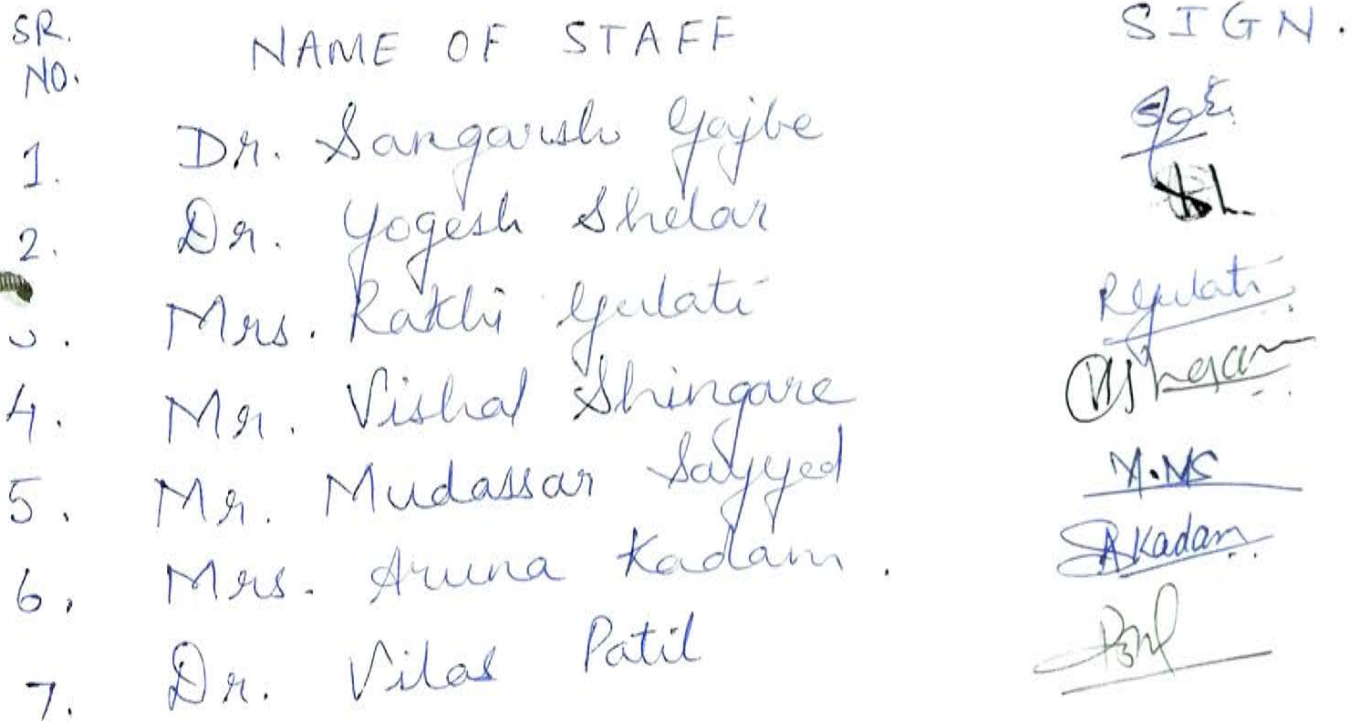 SR. NO. NAME OF STAFF SIGN.
1. Dr. Sangarsh Gajbe
2. Dr. Yogesh Shelar
3. Mrs. Rakhi Gulati RGulati
4. Mr. Vishal Shingare
5. Mr. Mudassar Sayyed M.NS
6. Mrs. Aruna Kadam. AKadam
7. Dr. Vilas Patil